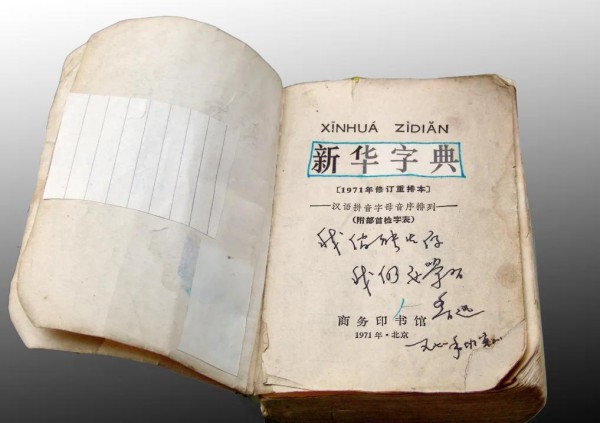 XĪNHUÁ ZÌDIǍN
新华字典
[1971年修订重排本]
——汉语拼音字母音序排列——
(附部首检字表)
我
我们 学习
鲁迅
商务印书馆
1971年·北京
一九七一年